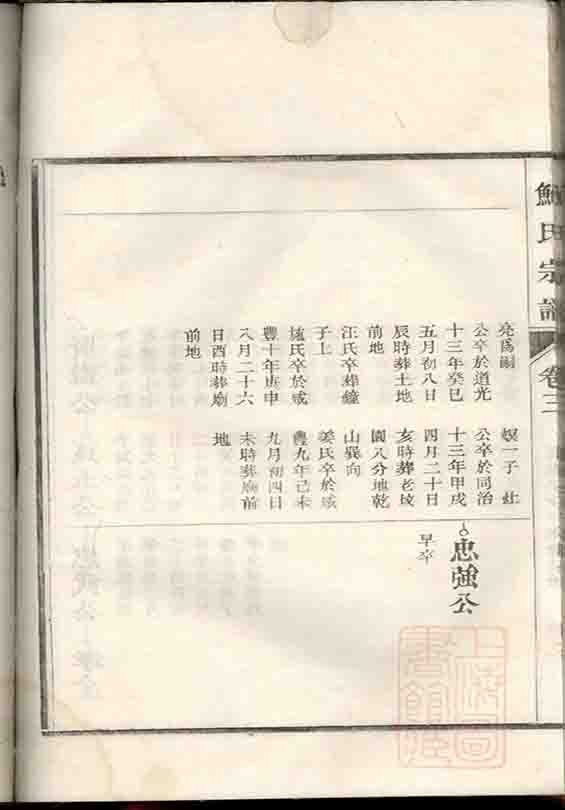 鮑氏宗譜
卷三
堯爲嗣
公卒於道光
十三年癸巳
五月初八日
辰時葬土地
前地
汪氏卒葬鐘
子上
施氏卒於咸
豐十年庚申
八月二十六
日酉時葬廟
前地
娱一子 社
公卒於同治
十三年甲戌
四月二十日
亥時葬老坟
園八分地乾
山巽向
姜氏卒於咸
豐九年己未
九月初四日
未時葬廟前
地
忠強公
早卒
上海圖
書館藏